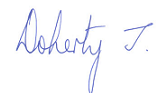 Doherty J.